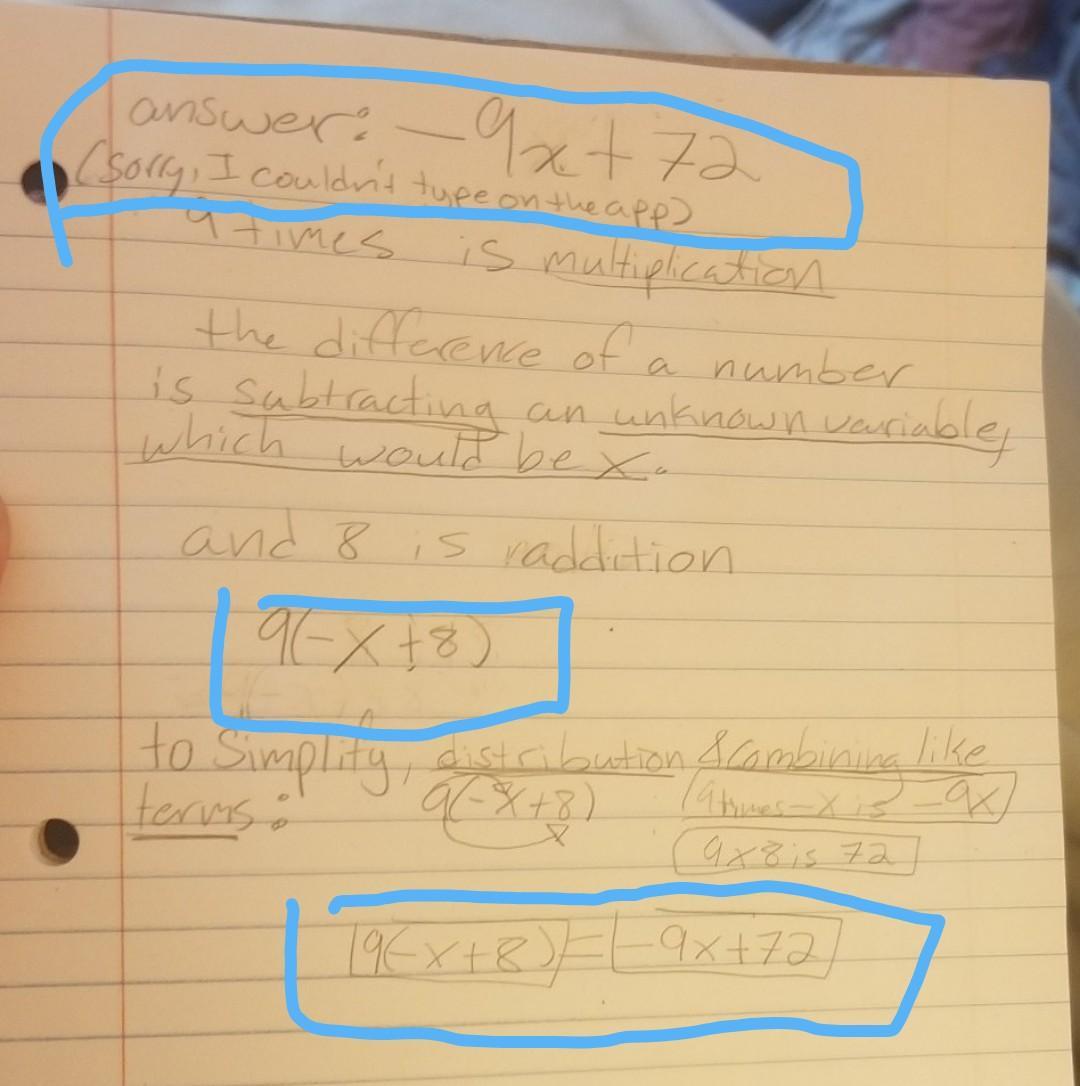 answer: -9x+72
(sorry, I couldn't type on the app)
9 times is multiplication
the difference of a number
is subtracting an unknown variable,
which would be x.
and 8 is addition
9(-x+8)
to Simplify, distribution & combining like
terms: 9(-x+8) 9times-x is -9x
9x8 is 72
9(-x+8)=-9x+72